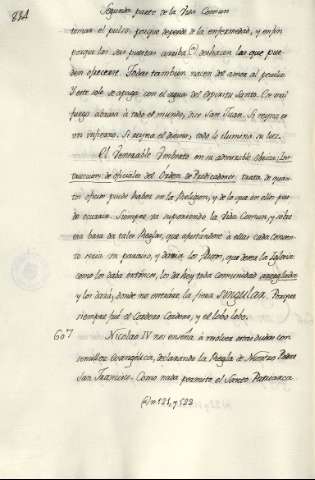 834
Segunda parte de la Vida Comun
tomar el pulso, porque depende de la enfermedad, y en fin
porque las dos puestas arriba (*) deshacen las que pue-
den ofrecerse. Todas tambien nacen del amor al peculio
y este solo se apaga con el agua del Espiritu Santo. Ese mal
fuego abrasa à todo el mundo, dice San Juan. Si reyna es
un infierno. Si reyna el divino, todo lo ilumina su luz.
El Venerable Umberto en su admirable obrica, Ins-
truccion de oficiales del Orden de Predicadores, trata de quan-
tos oficios puede haber en la Religion, y de lo que en ellos pue-
de ocurrir. Siempre va suponiendo la Vida Comun, y sobre
esa basa da tales Reglas, que ajustandose à ellas cada Conven-
to seria un paraiso, y daria los frutos, que deben la Iglesia
como los daba entonces, los da hoy toda comunidad arreglada
y los daria, donde no entrára la fiera singular. Porque
siempre fué el Cordero Cordero, y el lobo lobo.
607 Nicolao IV nos enseña à resolver otras dudas con
sencillez evangelica, declarando la Regla de Nuestro Padre
San Francisco. Como nada permite el Santo Patriarca
(*) n. 121, y 522